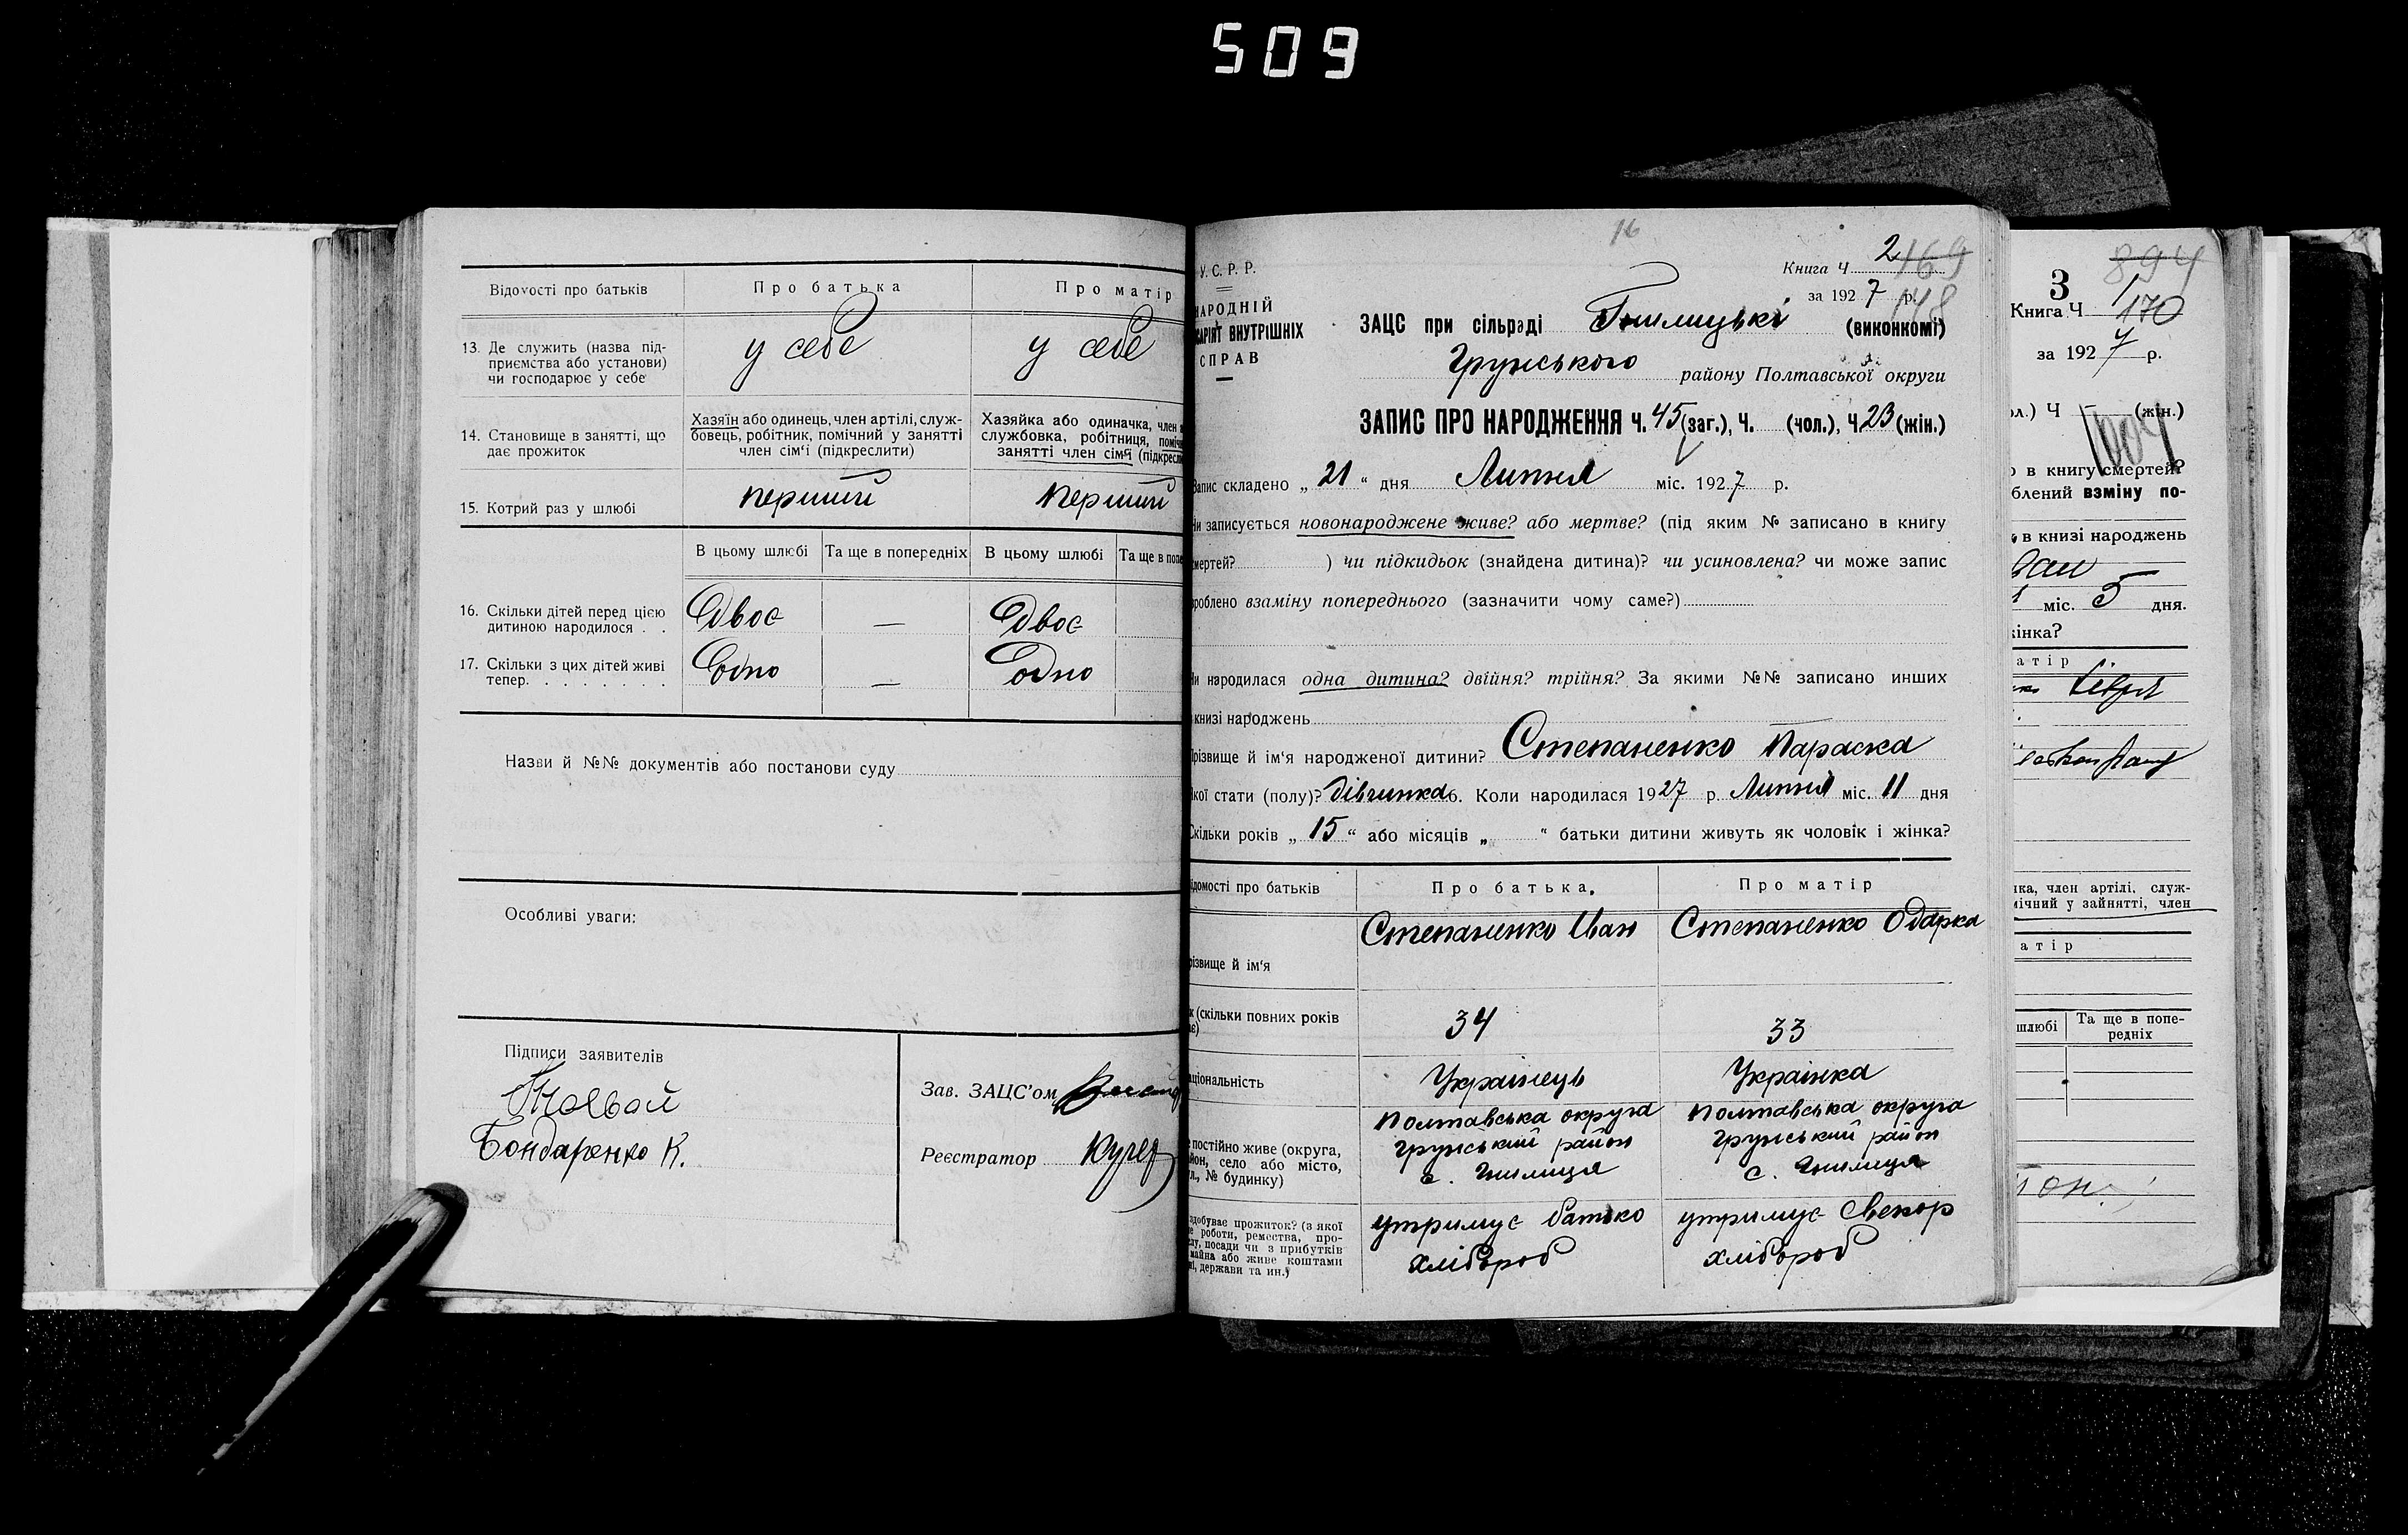 509
Відомості про батьків
Про батька
Про матір
13. Де служить (назва під-
приємства або установи)
чи господарює у себе
у себе
у себе
14. Становище в занятті, що
дає прожиток
Хазяїн або одинець, член артілі, служ-
бовець, робітник, помічний у занятті
член сім'ї (підкреслити)
Хазяйка або одиначка, член
службовка, робітниця,
занятті член сім'ї
15. Котрий раз у шлюбі
перший
перший
В цьому шлюбі
Та ще в попередніх
В цьому шлюбі
Та ще в
16. Скільки дітей перед цією
дитиною народилося . .
Двоє
—
Двоє
17. Скільки з цих дітей живі
тепер. . . . . . . .
Одно
—
Одно
Назви й №№ документів або постанови суду
Особливі уваги:
Підписи заявителів
Бондаренко К.
Зав. ЗАЦС'ом
Реєстратор Кучер
16
У.С.Р.Р.
НАРОДНІЙ
ВНУТРІШНІХ
СПРАВ
Книга Ч 2 169
за 1927 р. 148
ЗАЦС при сільраді Гнилицькі (виконкомі)
Грунського району Полтавської округи
ЗАПИС ПРО НАРОДЖЕННЯ Ч. 45 (заг.), Ч. (чол.), Ч 23 (жін.)
Запис складено „ 21 “ дня Липня міс. 1927 р.
Чи записується новонароджене живе? або мертве? (під яким № записано в книгу
смертей? ) чи підкидьок (знайдена дитина)? чи усиновлена? чи може запис
зроблено взаміну попереднього (зазначити чому саме?)
Чи народилася одна дитина? двійня? трійня? За якими №№ записано инших
книзі народжень
Прізвище й ім'я народженої дитини? Степаненко Параска
Якої стати (полу)? дівчинка б. Коли народилася 1927 р. Липня міс. 11 дня
Скільки років „ 15 “ або місяців „ “ батьки дитини живуть як чоловік і жінка?
Відомості про батьків
Про батька.
Про матір
Прізвище й ім'я
Степаненко Иван
Степаненко Одарка
(скільки повних років
34
33
національність
Українець
Українка
постійно живе (округа,
район, село або місто,
№ будинку)
Полтавська округа
Грунський район
с. Гнилиця
Полтавська округа
Грунський район
с. Гнилиця
здобуває прожиток? (з якої
роботи, ремества, про-
посади чи з прибутків
майна або живе коштами
держави та ин.)
утримує батько
хлібороб
утримує Свекор
хлібороб
894
3
1
Книга Ч 170
за 1927 р.
Ч — (жін.)
1004
в книгу смертей?
взміну по-
в книзі народжень
міс. 5 дня.
жінка?
член артілі, служ-
у зайнятті, член
шлюбі
Та ще в попе-
редніх